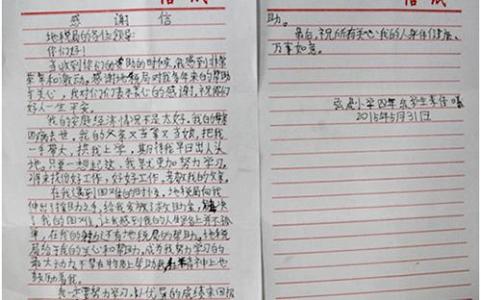 感谢信
地税局的各位领导:
你们好!
当收到你们的资助的时候,我感到非常
荣幸和激动。感谢地税局对我多年来的帮助
与关心,我对你们表示衷心的感谢,祝愿你们
好人一生平安。
我的家庭经济情况不是太好,我的母
因病去世,我的父亲又当爹又当娘,把我
一手带大,供我上学,期待我早日出人头
地,只要一想起这,我就更加努力学习,
将来找份好工作,好好工作,孝敬我的父亲。
在我遇到困难的时候,地税局向我
伸出了援助之手,给我发放了救助金,解决了
我的困难,让我感到我的人生路上并不孤
单,在我的 还有地税局的帮助。地税
局给予我的关心和帮助,成为我努力学习的
最大动力,不管在物质上帮助我,精神上也
鼓励着我。
我一定要努力学习,以优异的成绩来回报
助。
最后,祝所有关心我的人身体健康,
万事如意。
小学四年 学生李佳
2015年5月31日